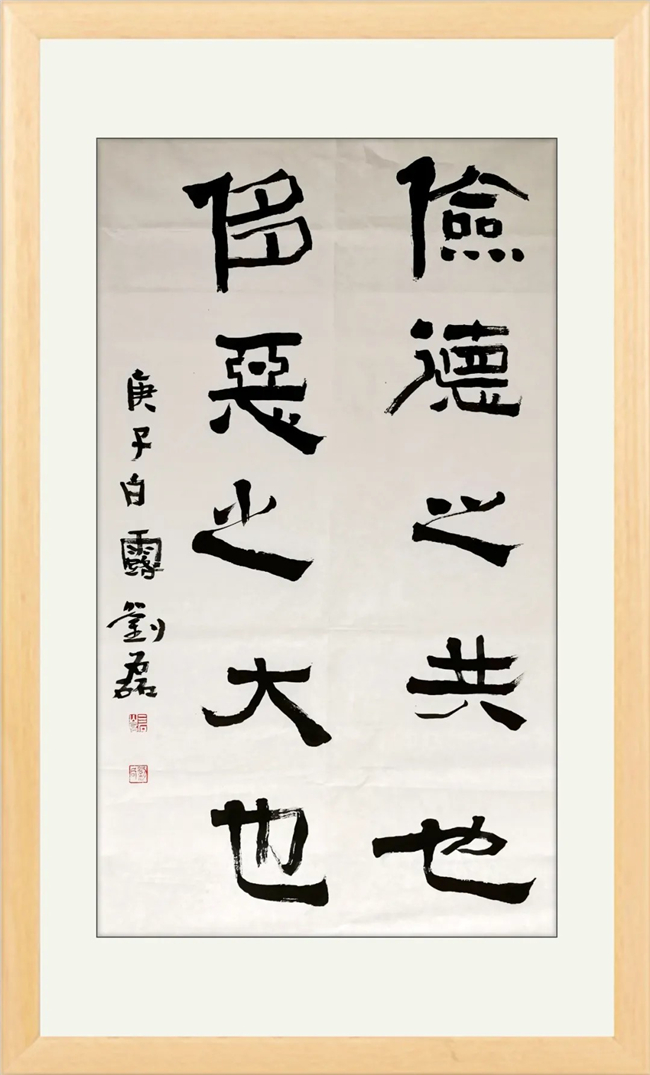 儉德之共也
侈惡之大也
庚子白露劉磊